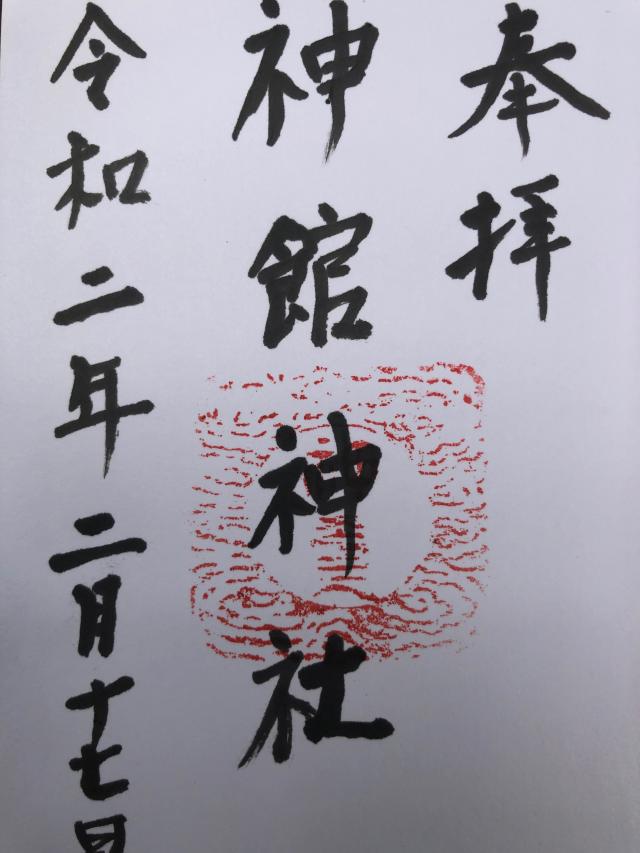 奉拝
神館神社
令和二年二月十七日